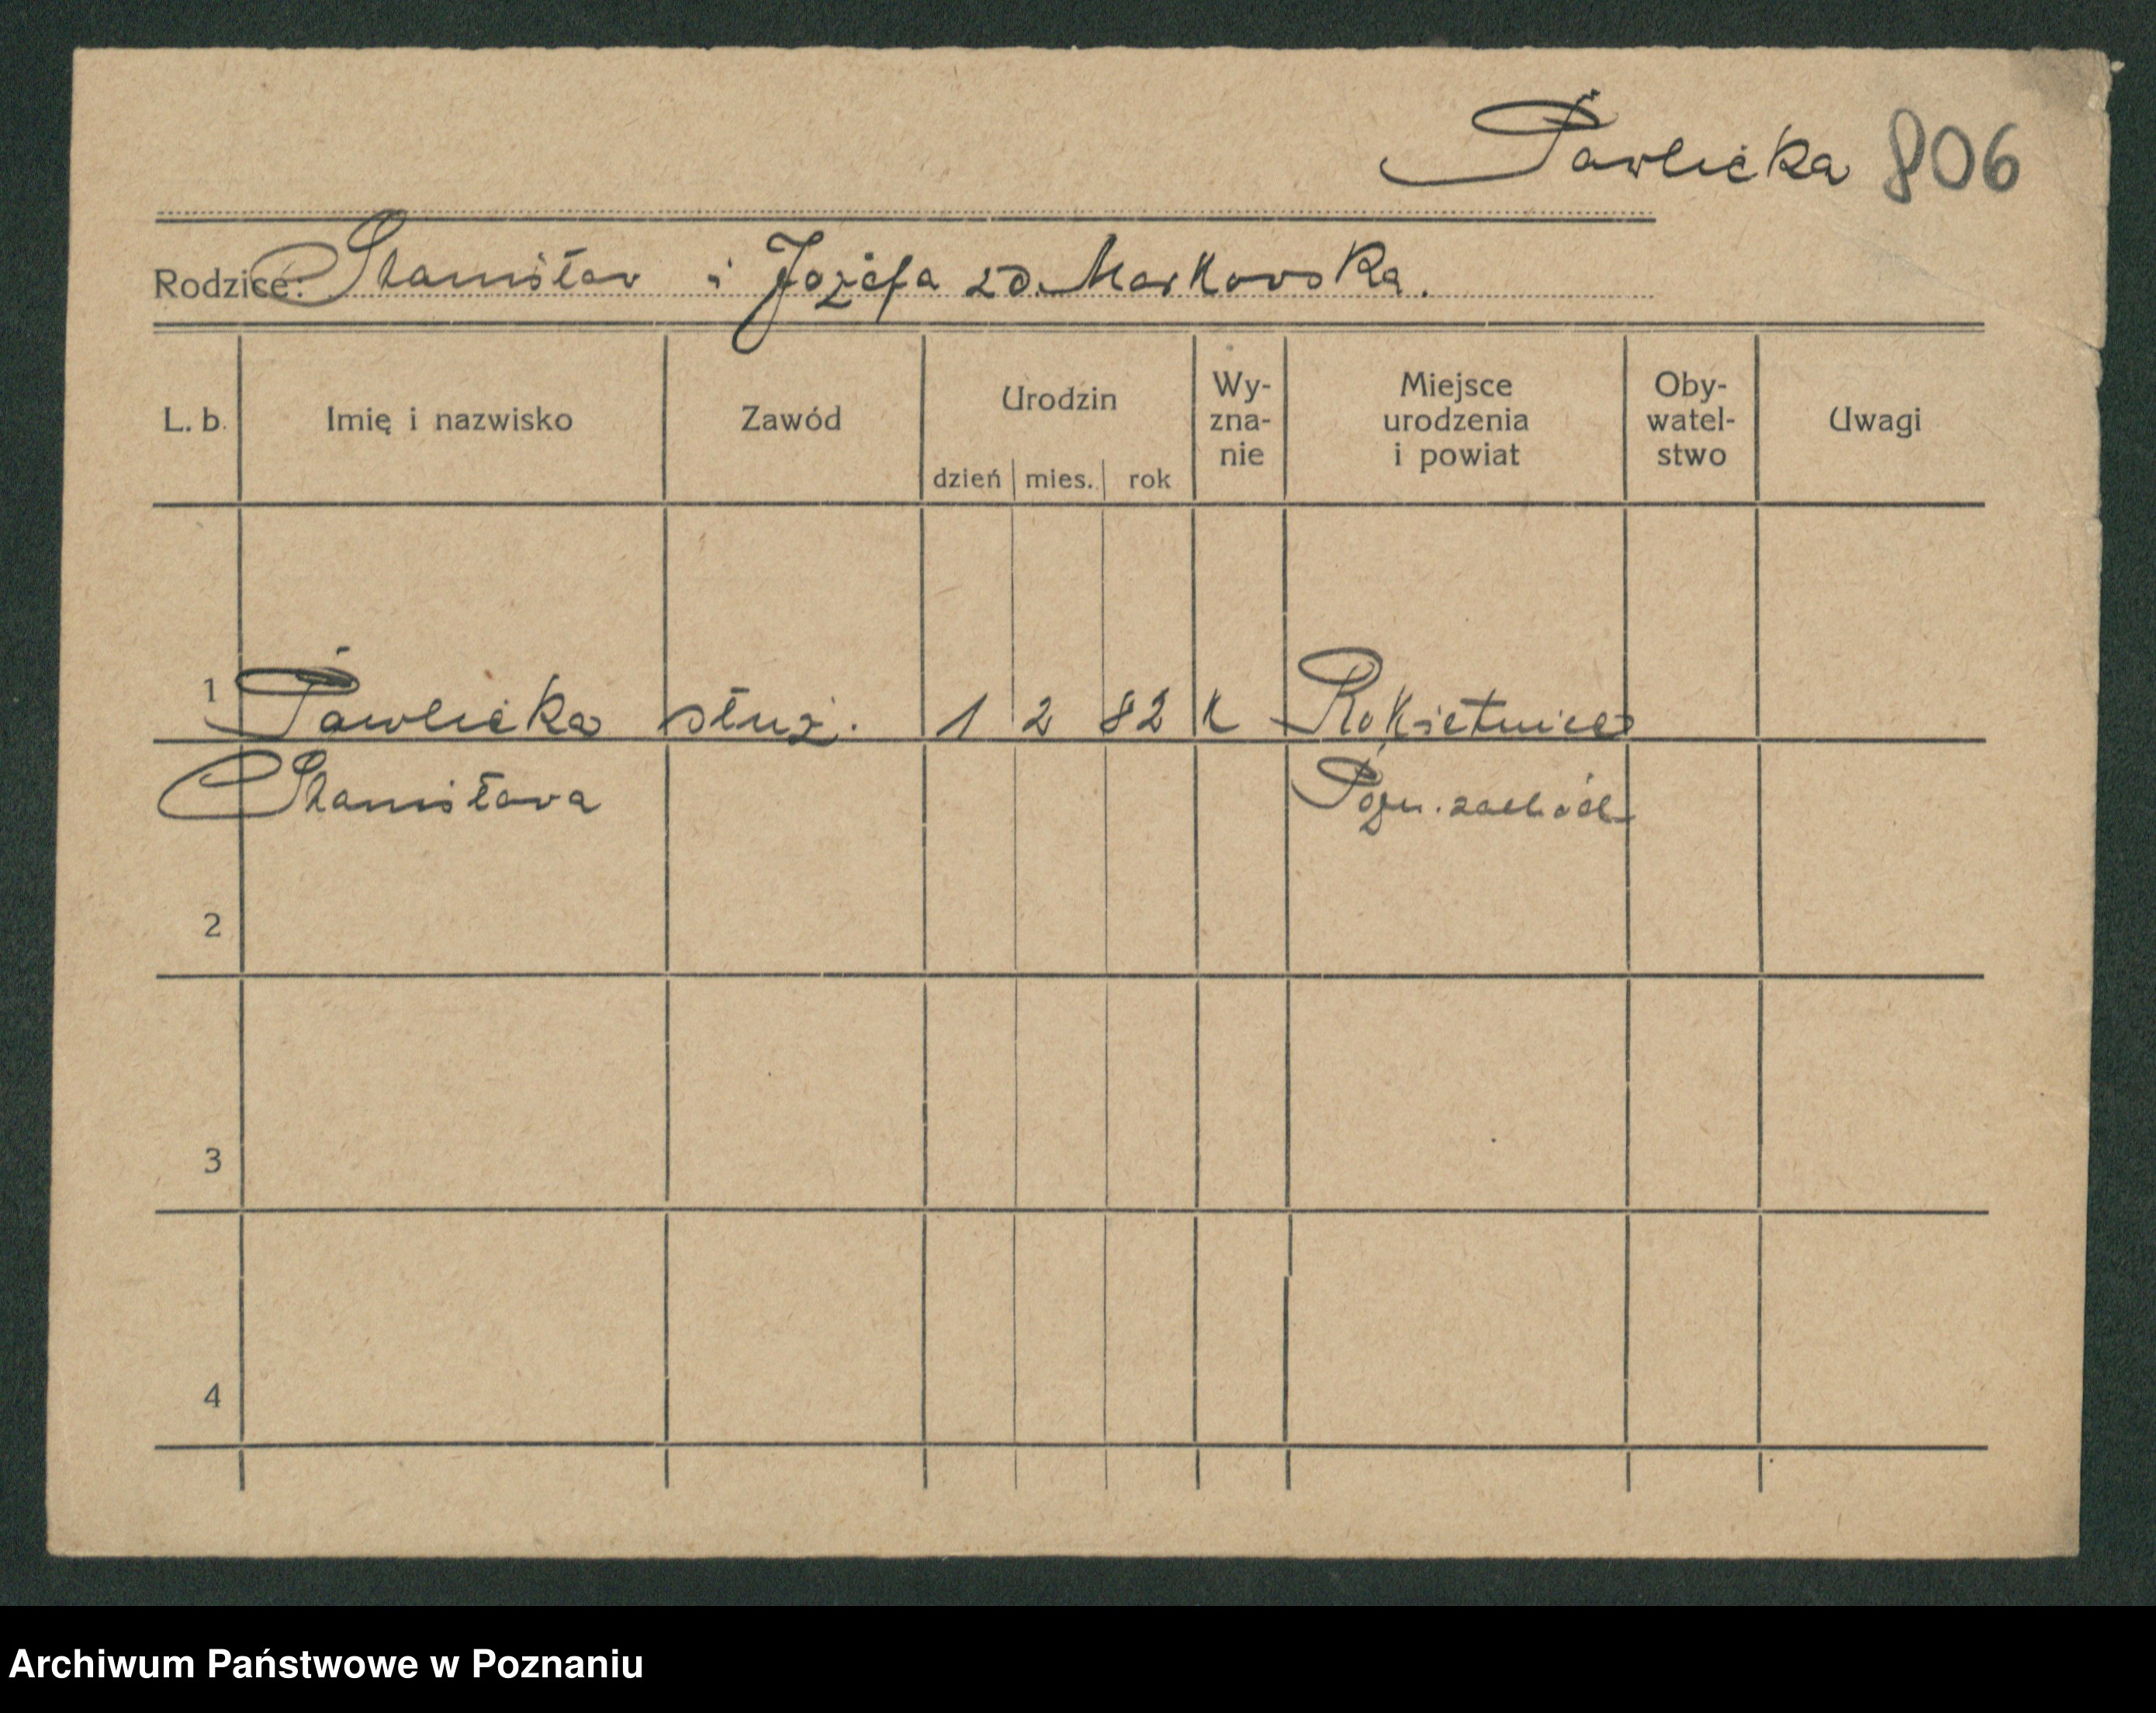 Pawlicka 806
Rodzice: Stanisław i Józefa zd. Markowska.
L. b. Imię i nazwisko Zawód Urodzin dzień mies. rok Wy-zna-nie Miejsce urodzenia i powiat Oby-watel-stwo Uwagi
1 Pawlicka służ. 1 2 82 k Rokietnica
Stanisława Pozn. zachód
2
3
4
Archiwum Państwowe w Poznaniu